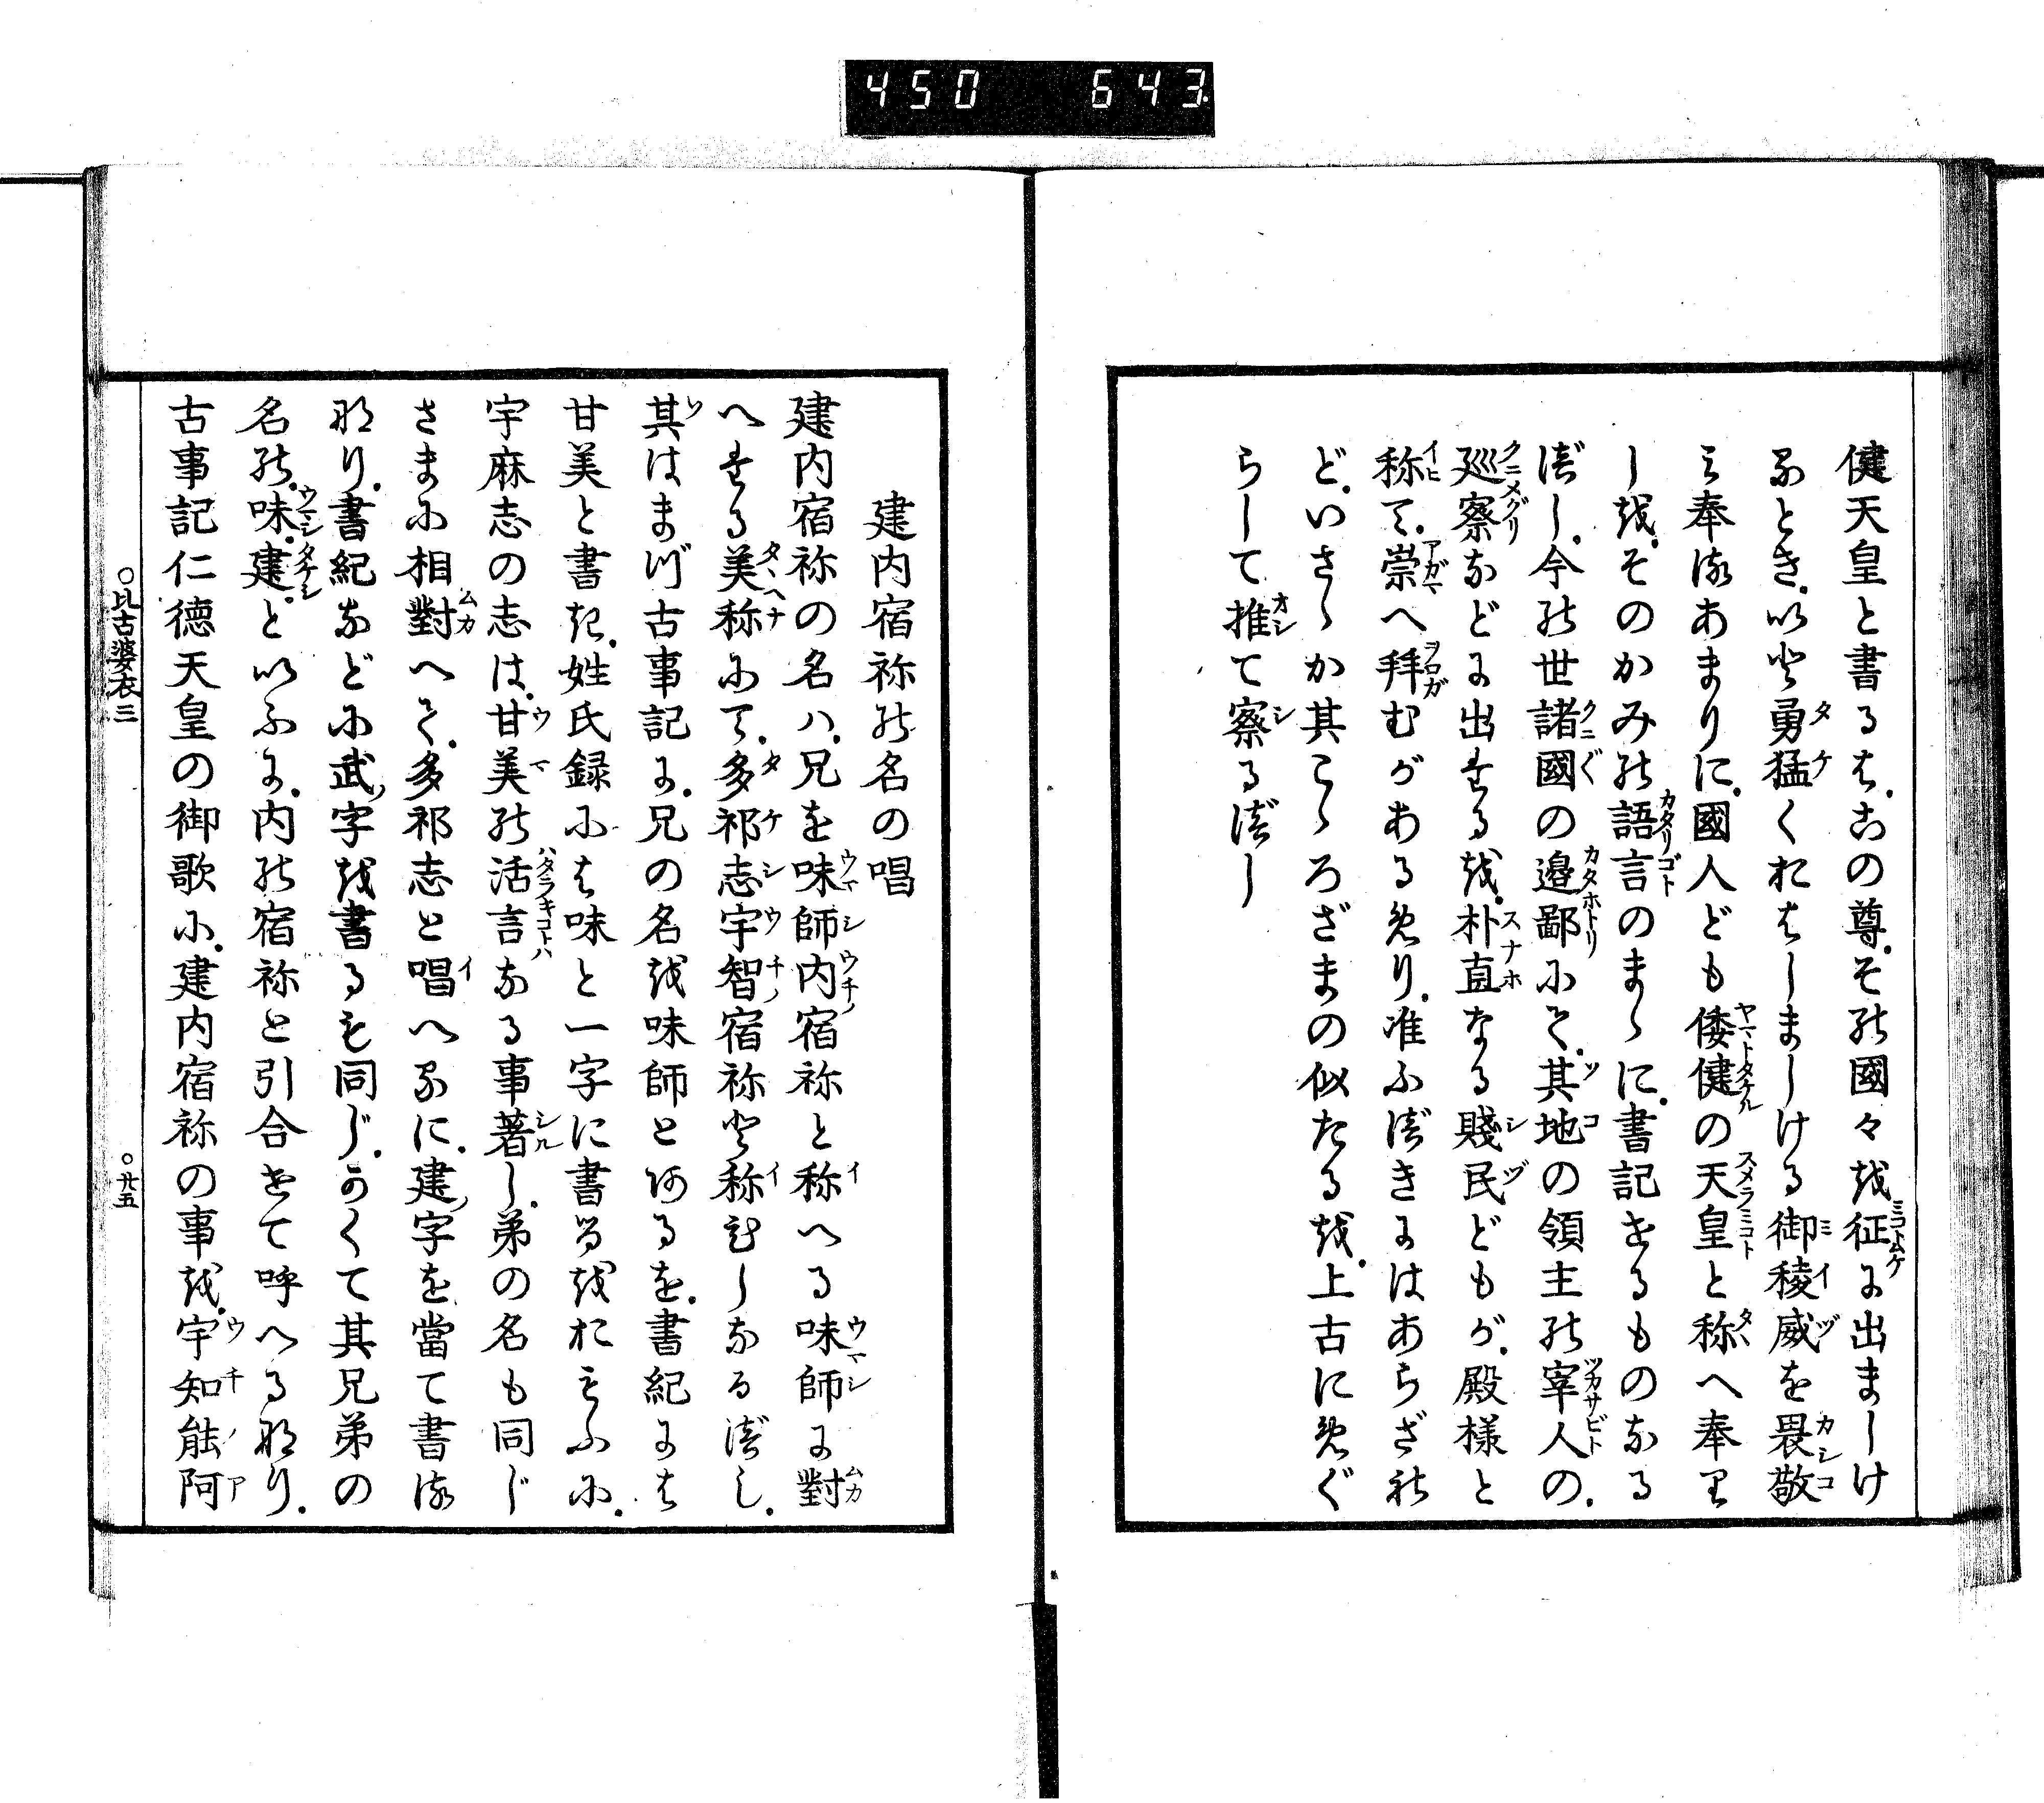 450 643.
健天皇と書るは、この尊、その國々を征に出ましけ
るとき、いと勇猛くおはしましける御稜威を畏敬
み奉るあまりに、國人ども倭健の天皇と称へ奉り
しを、そのかみの語言のまゝに、書記せるものなる
べし、今の世諸國の邉鄙にて、其地の領主の宰人の、
巡察などに出たるを、朴直なる賤民どもが、殿様と
称て、崇へ拜むがあるめり、准ふべきにはあらざれ
ど、いさゝか其こゝろざまの似たるを、上古にめぐ
らして推て察るべし
建内宿祢の名の唱
建内宿祢の名ハ、兄を味師内宿祢と称へる味師に對
へたる美称にて、多祁志宇智宿祢と称むしなるべし、
其はまづ古事記に、兄の名を味師とあるを、書紀には
甘美と書き、姓氏録には味と一字に書るをおもふに、
宇麻志の志は、甘美の活言なる事著し、弟の名も同じ
さまに相對へて、多祁志と唱へるに、建字を當て書る
なり、書紀などに武字を書るも同じ、かくて其兄弟の
名の、味、建、といふに、内の宿祢と引合せて呼へるなり、
古事記仁德天皇の御歌に、建内宿祢の事を、宇知能阿
○比古婆衣三 ○廿五